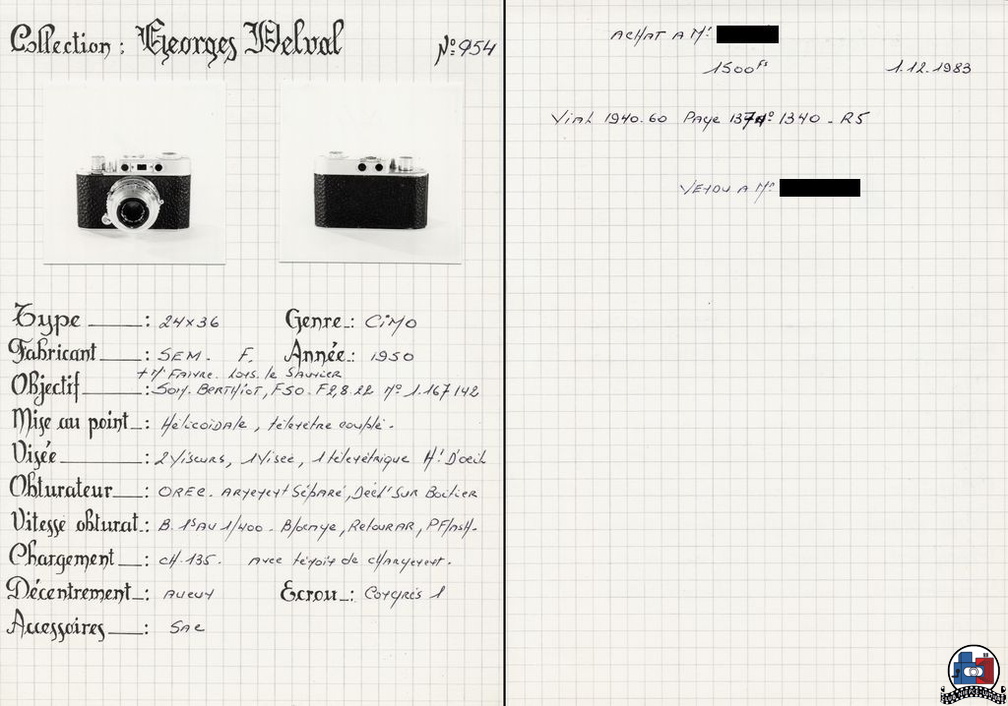 Collection : Georges Delval
N° 954
Type : 24x36
Genre : CiMO
Fabricant : SEM. F.
Année : 1950
+ Mr FAIVRE. Lons. le SAUNIER
Objectif : SOM. BERTHIOT, F50. F2,8.22 N° 1.167142
Mise au point : Hélicoïdale, télémètre couplé.
Visée : 2 Viseurs, 1 Visée, 1 télémétrique Ht D'oeil
Obturateur : OREC. Armement Séparé, Décl' Sur Boitier
Vitesse obturat. : B. 1s AU 1/400 - Blocage, Retour AR, P Flash.
Chargement : CH. 135. Avec témoin de chargement.
Décentrement : Aucun
Ecrou : Congrès 1
Accessoires : Sac
ACHAT A Mr
1500Fs
1.12.1983
Vial 1940.60 Page 137 n° 1340 - R5
VENDU A Mr